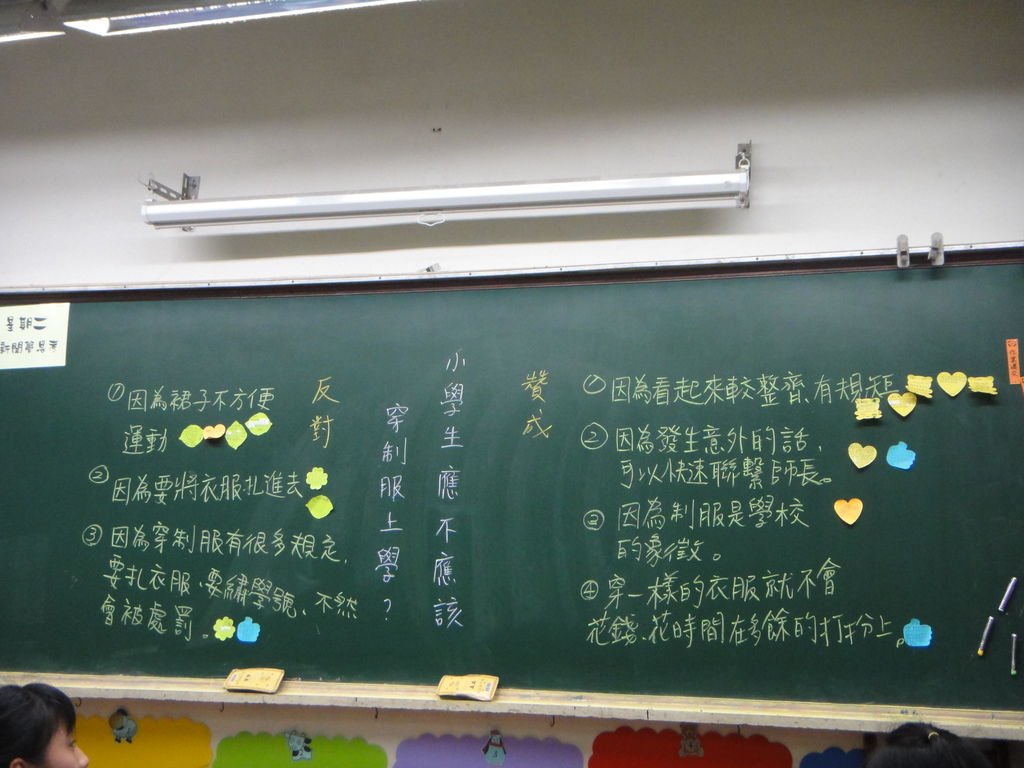 星期二
小學生應不應該
穿制服上學？
反對
①因為裙子不方便
運動
②因為要將衣服扎進去
③因為穿制服有很多規定，
要扎衣服、要繡學號、不然
會被處罰。
贊成
①因為看起來較整齊、有規矩
②因為發生意外的話，
可以快速聯繫師長。
③因為制服是學校
的象徵。
④穿一樣的衣服就不會
花錢、花時間在多餘的打扮上。